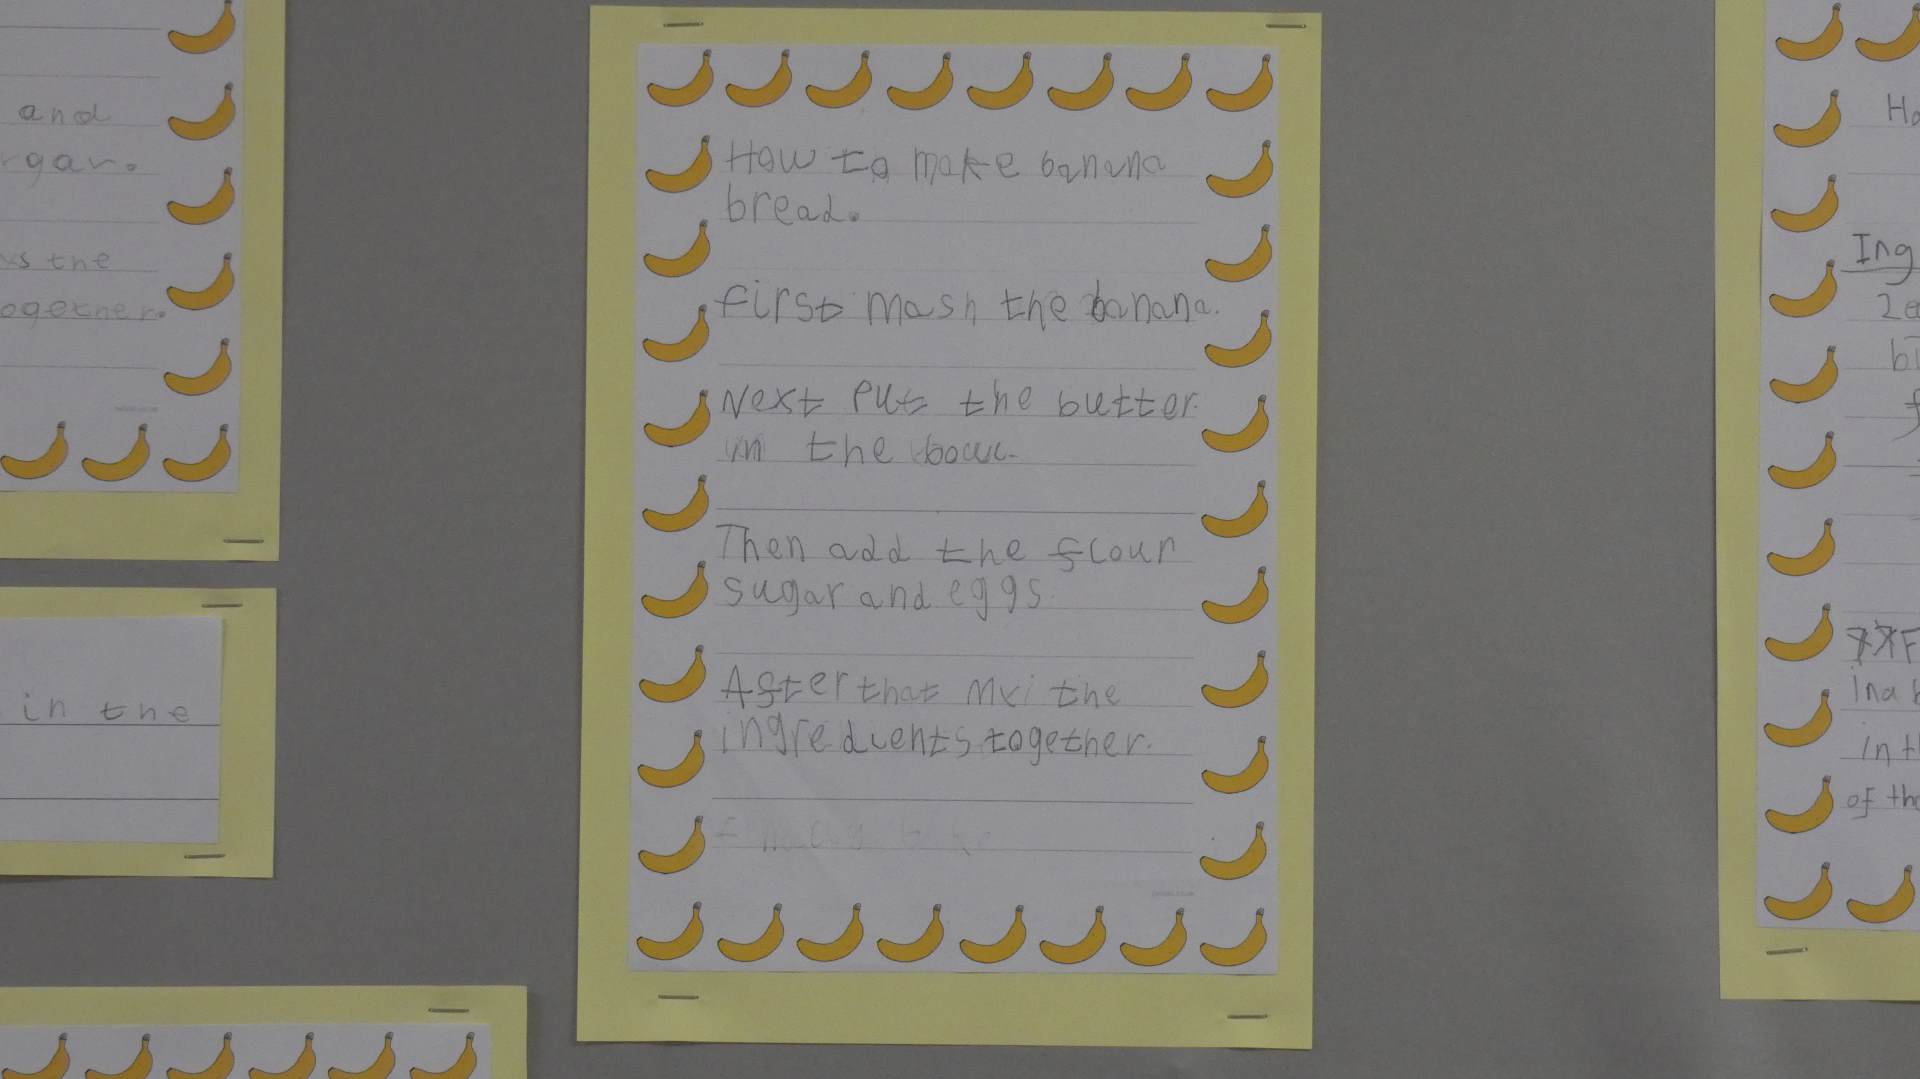 and
rgar.
the
ogether.
in the
How to make banana
bread.
first mash the banana.
Next put the butter.
in the bowl.
Then add the flour
sugar and eggs.
After that mxi the
ingredients together.
Ho
Ing
2e
b
F
in a b
in th
of the